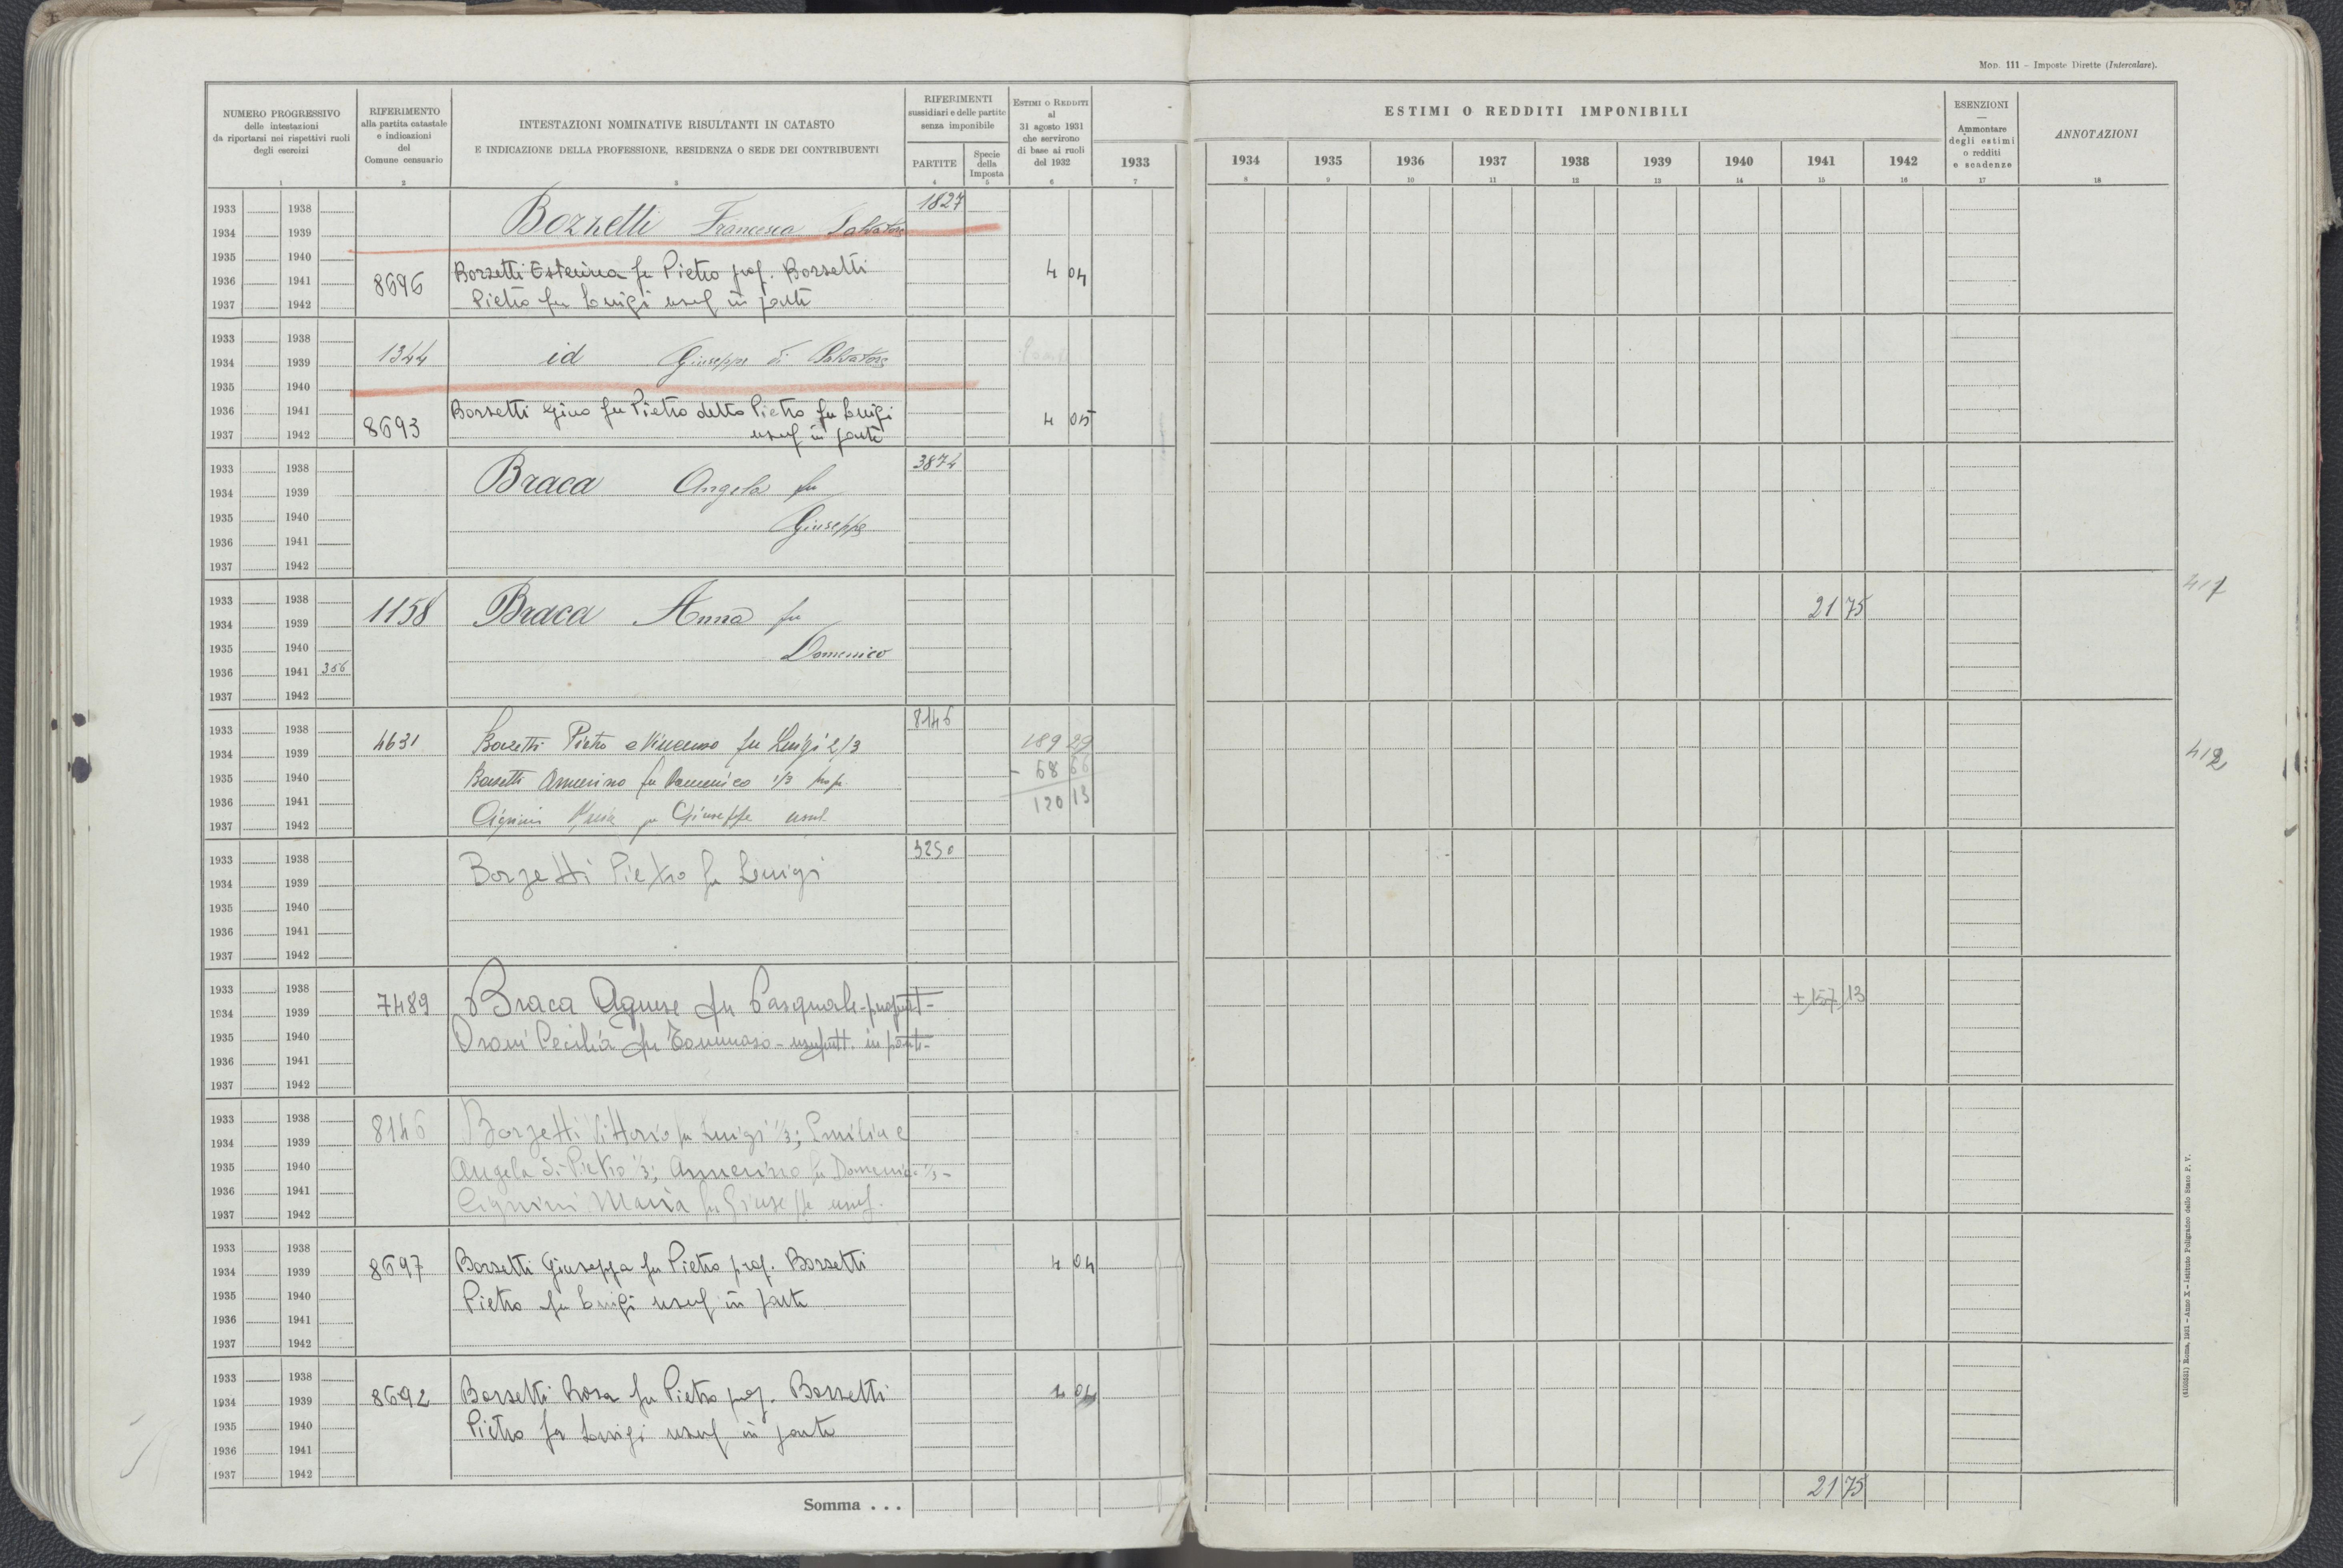 Mod. 111 – Imposte Dirette (Intercalare).
NUMERO PROGRESSIVO
delle intestazioni
da riportarsi nei rispettivi ruoli
degli esercizi
RIFERIMENTO
alla partita catastale
e indicazioni
del
Comune censuario
INTESTAZIONI NOMINATIVE RISULTANTI IN CATASTO
E INDICAZIONE DELLA PROFESSIONE, RESIDENZA O SEDE DEI CONTRIBUENTI
RIFERIMENTI
sussidiari e delle partite
senza imponibile
PARTITE
Specie
della
Imposta
Estimi o Redditi
al
31 agosto 1931
che servirono
di base ai ruoli
del 1932
ESTIMI O REDDITI IMPONIBILI
1933 1934 1935 1936 1937 1938 1939 1940 1941 1942
ESENZIONI
—
Ammontare
degli estimi
o redditi
e scadenze
ANNOTAZIONI
1 2 3 4 5 6 7 8 9 10 11 12 13 14 15 16 17 18
1933 1938 1827
1934 1939 Bozzetti Francesca Salvatore
1935 1940
1936 1941 8696 Borzetti Esterina fu Pietro prop. Borzetti 4 04
1937 1942 Pietro fu Luigi usuf in parte
1933 1938
1934 1939 1344 id Giuseppe di Salvatore
1935 1940
1936 1941 Borzetti Gino fu Pietro detto Pietro fu Luigi 4 05
1937 1942 8693 usuf in parte
1933 1938 3874
1934 1939 Braca Angela fu
1935 1940 Giuseppe
1936 1941
1937 1942
417
1933 1938 1158 Braca Anna fu 21 75
1934 1939
1935 1940 Domenico
1936 1941 356
1937 1942
1933 1938 8146
1934 1939 4631 Borzetti Pietro e Vincenzo fu Luigi 2/3 189 29 412
1935 1940 Borzetti Armerino fu Domenico 1/3 prop. - 68 66
1936 1941 120 13
1937 1942 Cignini Maria fu Giuseppe usuf.
1933 1938 3250
1934 1939 Borzetti Pietro fu Luigi
1935 1940
1936 1941
1937 1942
1933 1938 7489 Braca Agnese fu Pasquale - propriet - + 157 13
1934 1939
1935 1940 Orani Cecilia fu Tommaso - usufrutt. in parte -
1936 1941
1937 1942
1933 1938 8146 Borzetti Vittorio fu Luigi 1/3; Emilia e
1934 1939
1935 1940 Angela di Pietro 1/3; Armerino fu Domenico 1/3 -
1936 1941 Cignini Maria fu Giuseppe usuf.
1937 1942
1933 1938
1934 1939 8697 Borzetti Giuseppa fu Pietro prop. Borzetti 4 04
1935 1940 Pietro fu Luigi usuf in parte
1936 1941
1937 1942
1933 1938
1934 1939 8692 Borzetti Rosa fu Pietro prop. Borzetti 4 04
1935 1940 Pietro fu Luigi usuf in parte
1936 1941
1937 1942
Somma . . . 21 75
Roma, 1931 – Anno X – Istituto Poligrafico dello Stato P. V.